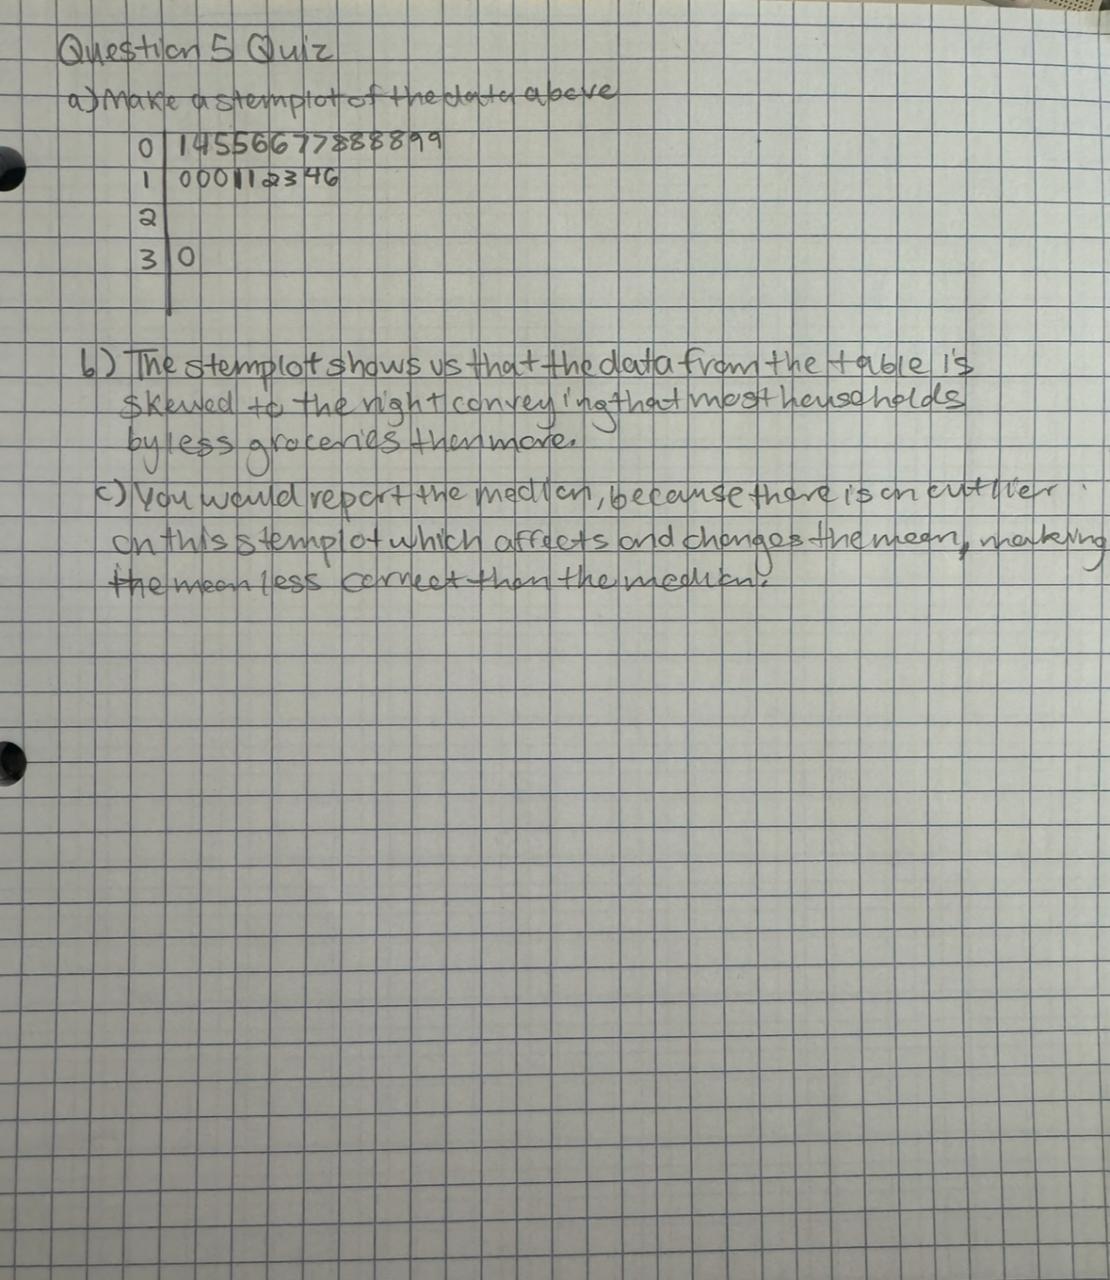 Question 5 Quiz
a) Make a stemplot of the data above
0 | 14556677888899
1 | 000112346
2 |
3 | 0
b) The stemplot shows us that the data from the table is
skewed to the right conveying that most households
by less groceries then more.
c) You would report the median, because there is an outlier
on this stemplot which affects and changes the mean, making
the mean less correct than the median.